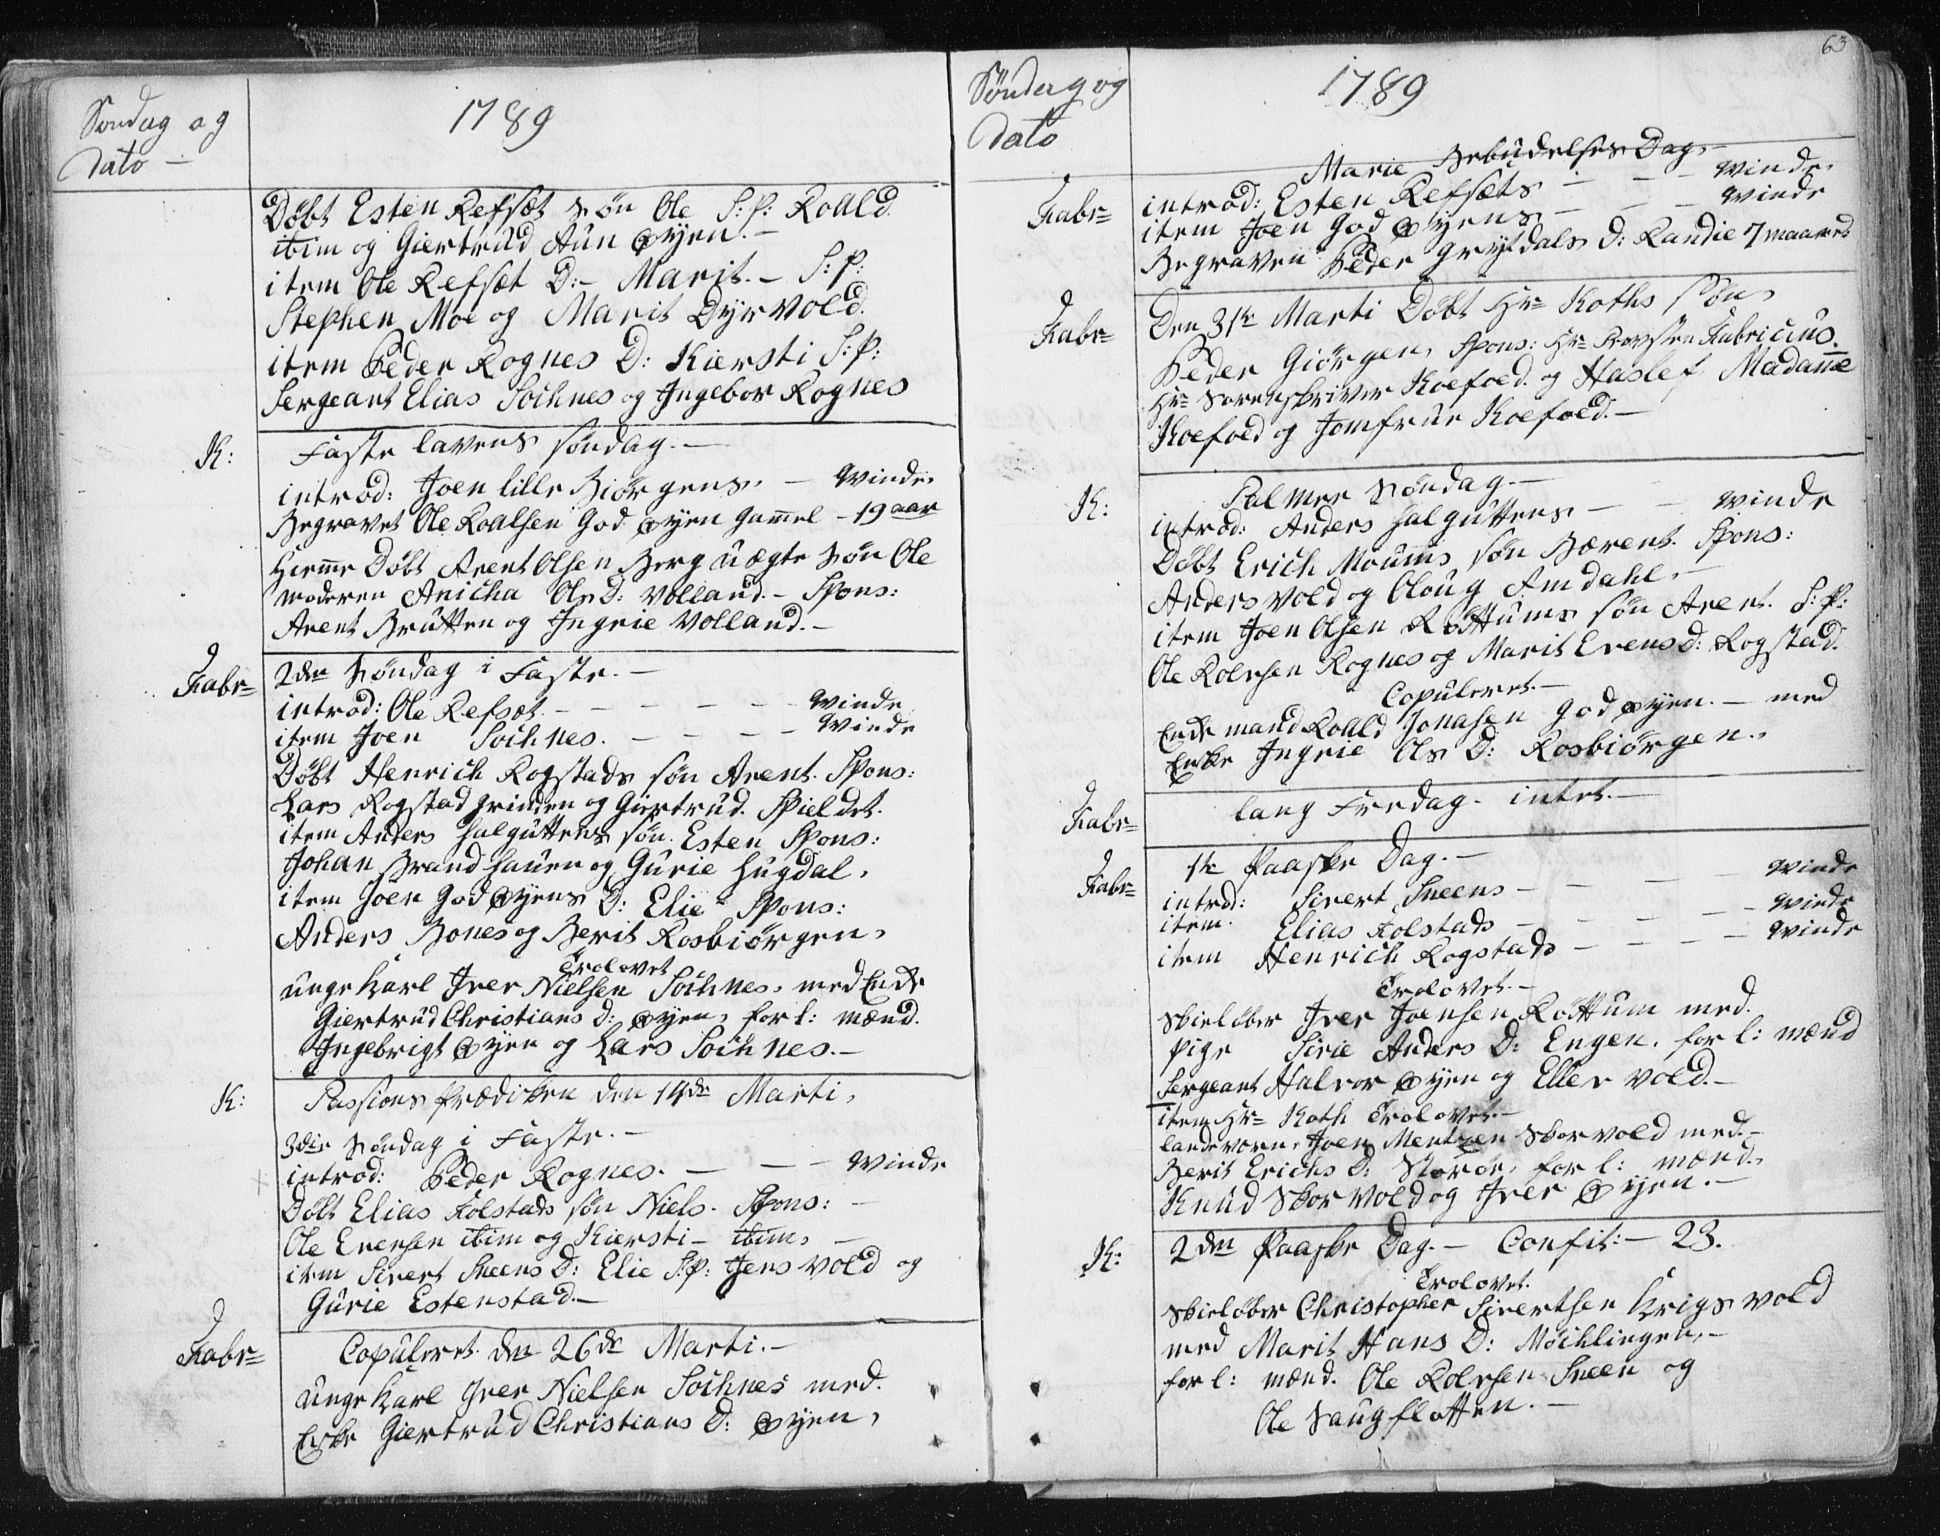 Søndag og
Dato
1789
Døbt Esten Refsæt søn Ole S: P: Roald
ibim og Giertrud Aun Øyen.
item Ole Refsæt D: Marit. S: P:
Stephen Moe og Marit Dyrvold.
item Peder Rognes D: Kiersti S: P:
Sergeant Elias Soihnes og Ingebor Rognes
K: Faste lavens søndag.
introd: Joen lille Biørgens. Qvinde.
Begravet Ole Roalsen God Øyen gammel 19 aar
Hiemme Døbt Arent Olsen Berg uægte søn Ole
moderen Anicha Ols D: Volland. Spons:
Arent Brutten og Ingrie Volland.
Fabr= 2den Søndag i Faste.
introd: Ole Refsæt. Qvinde
item Joen Soihnes. Qvinde
Døbt Henrich Rogstads søn Arent. Spons:
Lars Rogstad grinden og Giertrud Spieldet.
item Anders Halguttens søn. Esten Spons:
Johan Brandhauen og Gurie Hugdal.
item Joen God Øyens D: Elie Spons:
Anders Bones og Berit Rosbiørgen.
Trolovet
unge Karl Iver Nielsen Soihnes, med Enke
Giertrud Christians D: Øyen, forl: mænd.
Ingebrigt Øyen og Lars Soihnes.
K: Passions prædiken den 14de Marti.
3die Søndag i Faste.
introd: Peder Rognes. Qvinde
Døbt Elias Folstads søn Niels. Spons:
Ole Evensen ibim og Kiersti ibim.
item Sivert Sneens D: Elie S: P: Jens Vold og
Gurie Estenstad.
Fabr= Copuleret den 26de Marti.
unge Karl Iver Nielsen Soihnes med.
Enke Giertrud Christians D: Øyen.
63
Søndag og
Dato
1789
Marie Bebudelses Dag.
Fabr= introd: Esten Refsæts Qvinde.
item Joen God Øyens Qvinde
Begraven Peder Grytdals D: Randie 7 maaneds
Fabr= Den 31te Marti Døbt Hr= Koths søn
Peder Giørgen, Spons: Hr= Provsten Fabricius.
Hr= Sorenskriver Koefoed. og Haslef Madame
Koefoed og Jomfrue Koefoed.
K: Palmer Søndag.
introd: Anders Halguttens Qvinde
Døbt Erich Moums søn Berent. Spons:
Anders Vold og Oloug Amdahl.
item Joen Olsen Røttums søn Arent. S: P:
Ole Rolvsen Rognes og Marit Evens D: Rogstad.
Copuleret.
Enke mand Roald Jonasen God Øyen. med
Enke Ingrie Ols D: Rosbiørgen.
Fabr= lang Fredag. intet.
Fabr= 1te Paaske Dag.
introd: Sivert Sneens Qvinde
item. Elias Folstads Qvinde
item Henrich Rogstads Qvinde
Trolovet.
Skieløber Iver Joensen Røttum med.
Pige Sirie Anders D: Engen. forl: mænd
Sergeant Halvor Øyen og Eller Vold.
item Hr= Koth Trolovet.
landevern, Joen Mentzen Skorvold med.
Berit Erichs D: Storøe, forl: mænd.
Knud Skorvold og Iver Øyen.
K: 2den Paaske Dag. Confit: 23.
Trolovet.
Skieløber Christopher Sivertsen Krigsvold
med Marit Hans D: Møichlingen.
forl: mænd. Ole Rolvsen Sneen og
Ole Haugflotten.